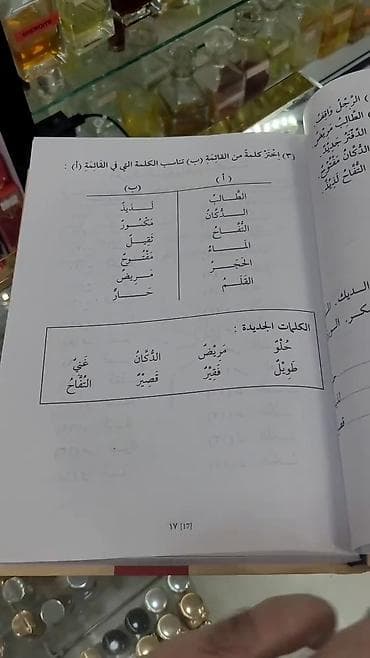 (٣) اِخْتَرْ كلمةً من القائِمَةِ (ب) تناسب الكلمة التي في القائِمَةِ (أ) :
(أ) (ب)
الطَّالِبُ لَـذِيذٌ
الـدُّكَّانُ مَكْسُورٌ
التُّفَّاحُ ثَقِيلٌ
المَـاءُ مَفْتُوحٌ
الحَجَـرُ مَـرِيضٌ
القَلَـمُ حَـارٌّ
الكلمات الجديدة :
حُلْوٌ مَرِيْضٌ الدُّكَّانُ غَنِيٌّ
طَوِيْلٌ فَقِيْرٌ قَصِيْرٌ التُّفَّاحُ
١٧ [17]
) الرَّجُلُ وَاقِفٌ
) الطَّالِبُ مَرِيْضٌ
الدَّفْتَرُ جَدِيْدٌ.
الدُّكَّانُ مَفْتُوحٌ.
التُّفَّاحُ لَذِيْذٌ